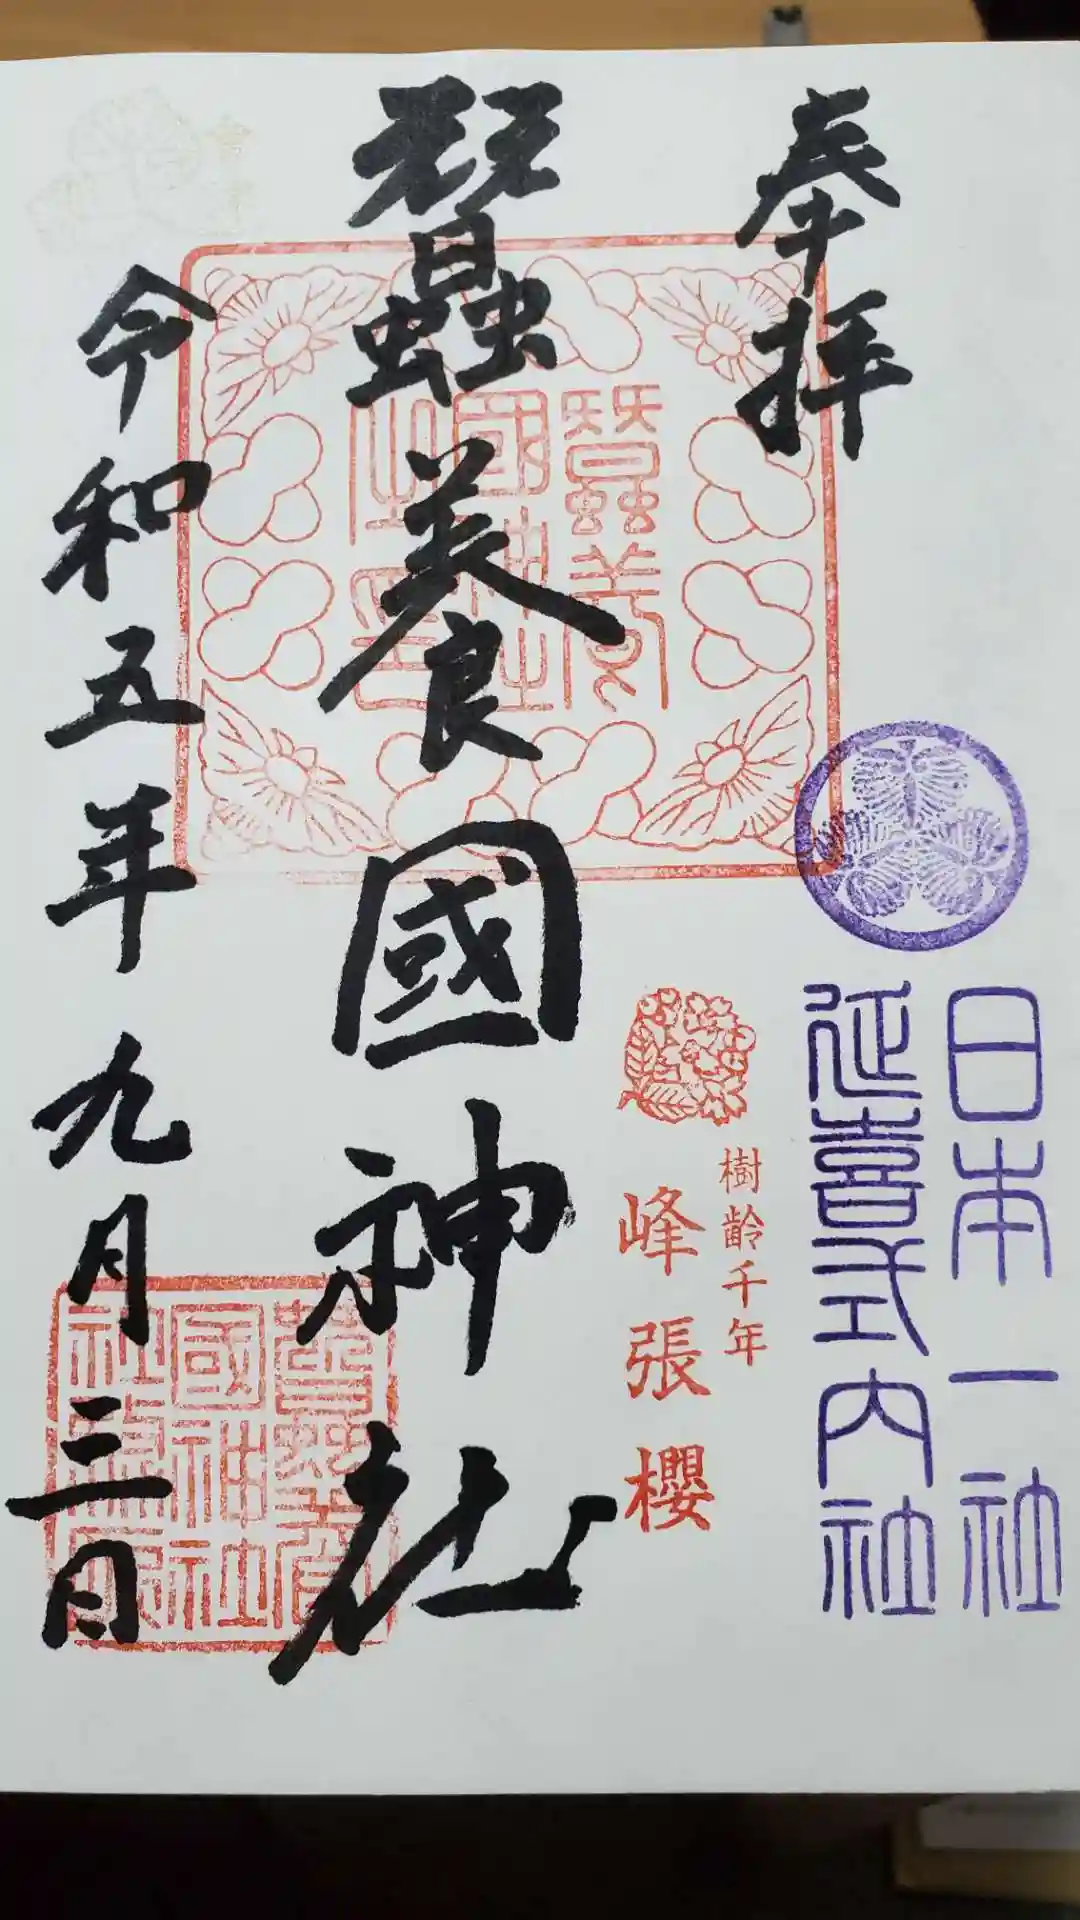 奉拝
日本一社
延喜式内社
樹齢千年
峰張櫻
蠶養國神社
蠶養
國神社
令和五年九月三日
蠶養
國神社